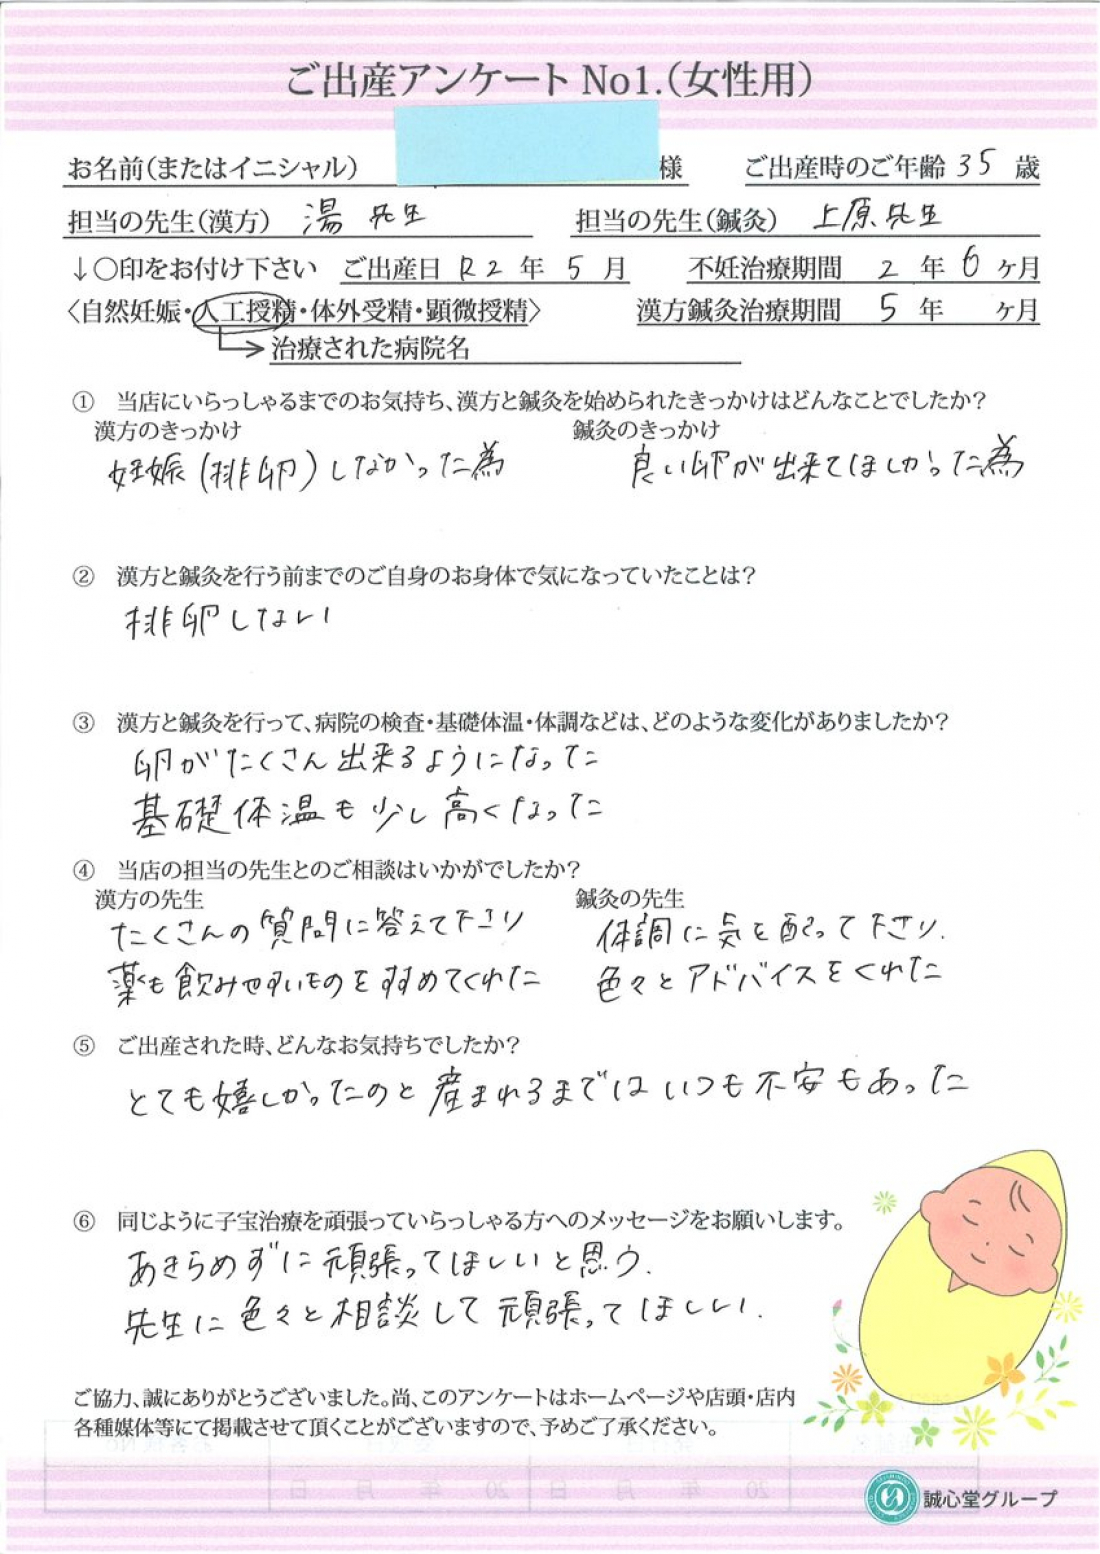 ご出産アンケート No1.(女性用)
お名前(またはイニシャル) 様 ご出産時のご年齢 35 歳
担当の先生(漢方) 湯 先生 担当の先生(鍼灸) 上原先生
↓○印をお付け下さい ご出産日 R2 年 5 月 不妊治療期間 2 年 6 ヶ月
〈自然妊娠・人工授精・体外受精・顕微授精〉 漢方鍼灸治療期間 5 年 ヶ月
治療された病院名
① 当店にいらっしゃるまでのお気持ち、漢方と鍼灸を始められたきっかけはどんなことでしたか?
漢方のきっかけ 鍼灸のきっかけ
妊娠(排卵)しなかった為 良い卵が出来てほしかった為
② 漢方と鍼灸を行う前までのご自身のお身体で気になっていたことは?
排卵しない
③ 漢方と鍼灸を行って、病院の検査・基礎体温・体調などは、どのような変化がありましたか?
卵がたくさん出来るようになった
基礎体温も少し高くなった
④ 当店の担当の先生とのご相談はいかがでしたか?
漢方の先生 鍼灸の先生
たくさんの質問に答えて下さり 体調に気を配って下さり.
薬も飲みやすいものをすすめてくれた 色々とアドバイスをくれた
⑤ ご出産された時、どんなお気持ちでしたか?
とても嬉しかったのと産まれるまではいつも不安もあった
⑥ 同じように子宝治療を頑張っていらっしゃる方へのメッセージをお願いします。
あきらめずに頑張ってほしいと思う.
先生に色々と相談して頑張ってほしい.
ご協力、誠にありがとうございました。尚、このアンケートはホームページや店頭・店内
各種媒体等にて掲載させて頂くことがございますので、予めご了承ください。
誠心堂グループ